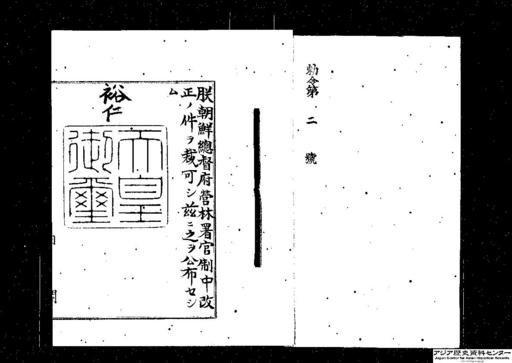 勅令第二號
朕朝鮮總督府營林署官制中改
正ノ件ヲ裁可シ茲ニ之ヲ公布セシ
ム
裕仁
天皇
御璽
アジア歴史資料センター
Japan Center for Asian Historical Records